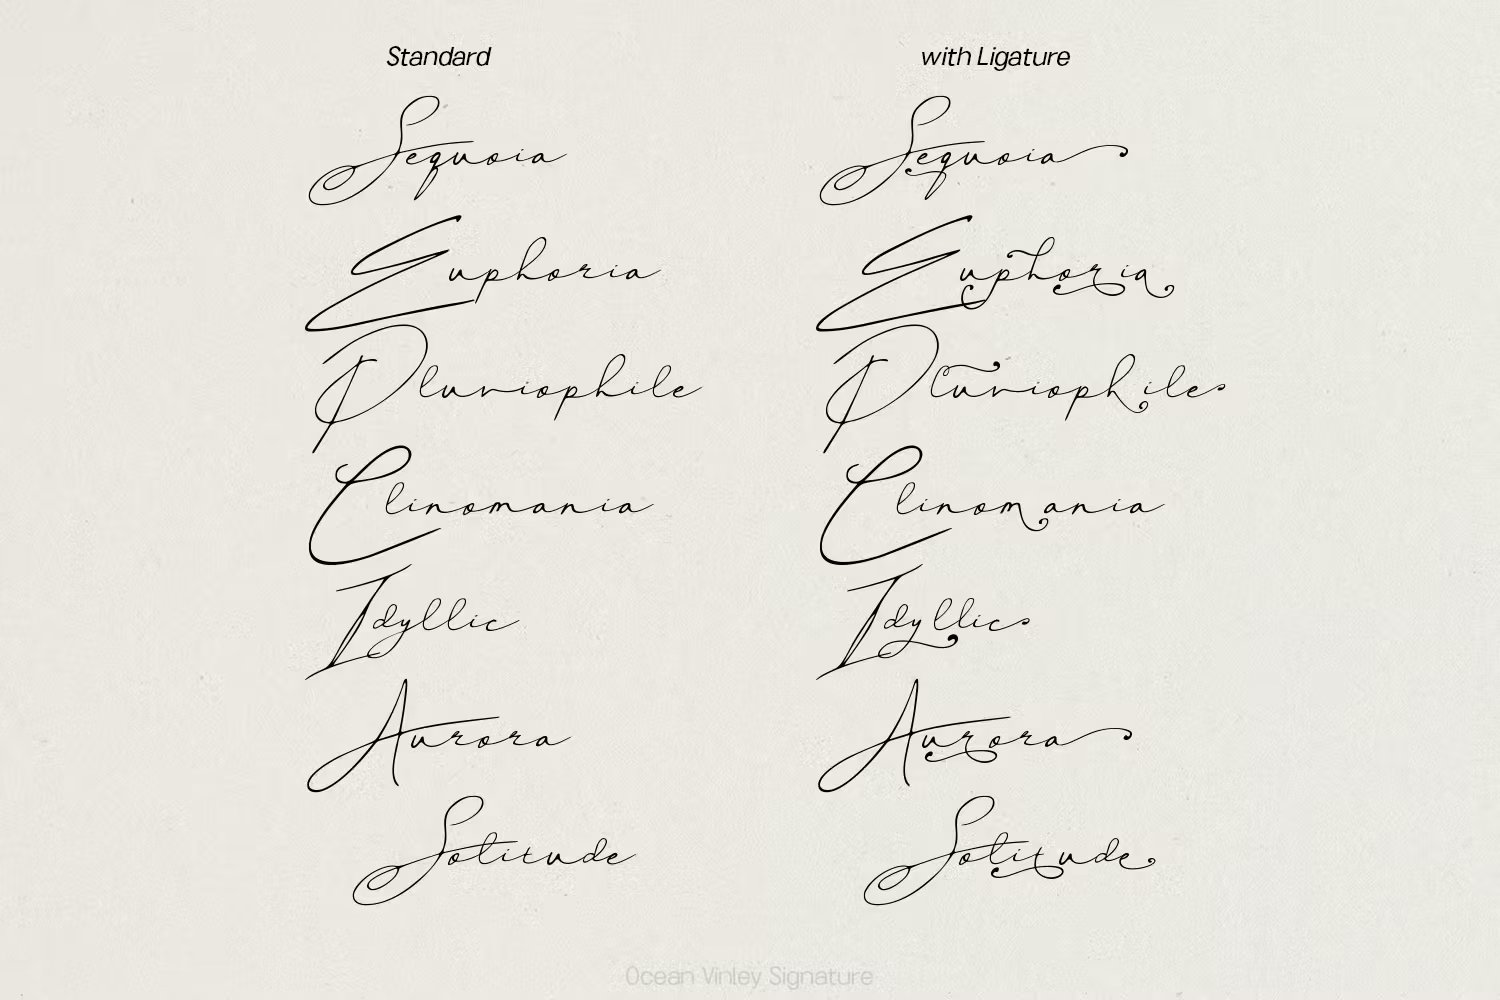 Standard with Ligature
Sequoia Sequoia
Euphoria Euphoria
Pluviophile Pluviophile
Clinomania Clinomania
Idyllic Idyllic
Aurora Aurora
Solitude Solitude
Ocean Vinley Signature